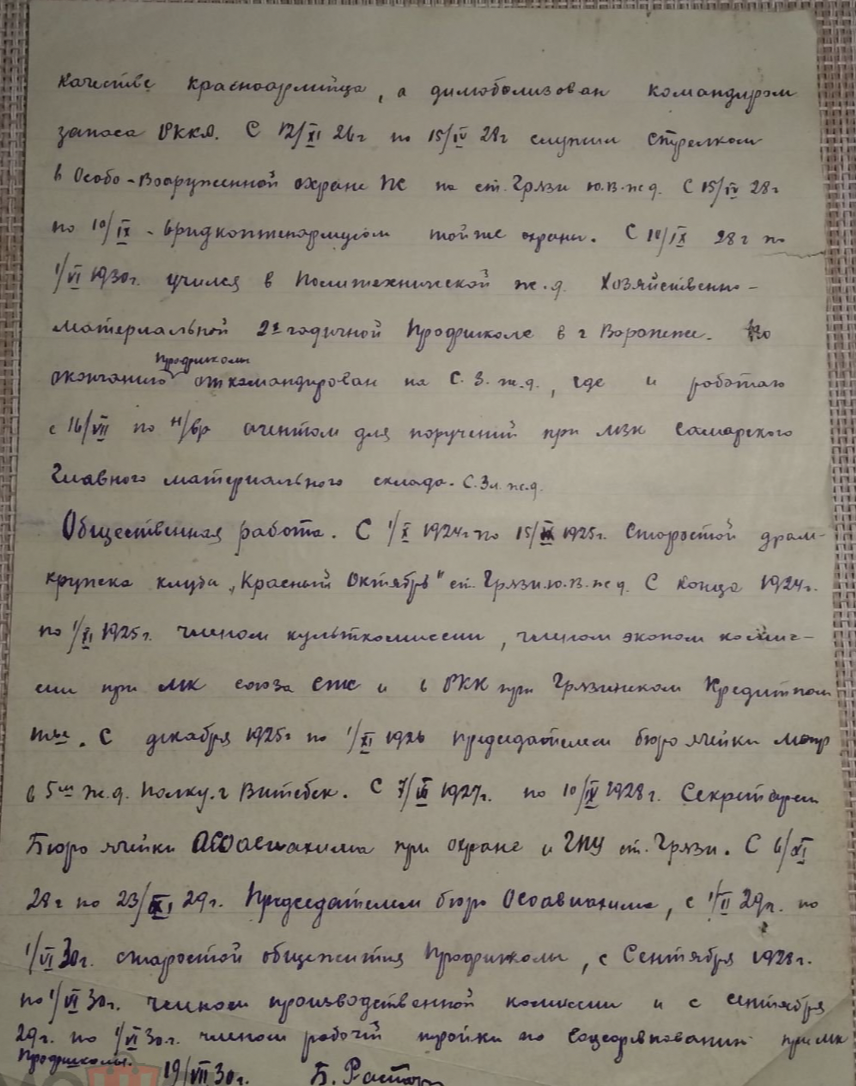 качестве красноармейца, а димоболизован командиром
запаса РККА. С 12/XI 26г по 15/IV 28г служил стрелком
в Особо-Вооруженной охране ПС на ст. Грязи Ю.В.ж.д. С 15/IV 28г
по 10/IX - тойже охраны. С 10/IX 28г по
1/VI 1930г. учился в Политехнической ж.д. Хозяйственно-
материальной 2х годичной Профшколе в г Воронеже. По
окончанию Профшколы откомандирован на С.З.ж.д., где и работаю
с 16/VII по н/вр агентом для поручений при Самарского
Главного материального склада. С.Зл.ж.д.
Общественная работа. С 1/X 1924г по 15/ 1925г. Старостой драм-
кружка клуба „Красный Октябрь" ст. Грязи Ю.В.ж.д. С конца 1924г.
по 1/XI 1925г. членом культкомиссии, членом эконом комис-
сии при МК союза и в РКК при Грязинском Кредитном
т-ве. С декабря 1925г по 1/XI 1926 председателем бюро ячейки
в 5м ж.д. полку. г Витебск. С 7/ 1927г. по 10/IX 1928г. Секретарем
Бюро ячейки Осоавиахима при охране и ГПУ ст. Грязи. С 6/XI
28г по 23/XI 29г. Председателем бюро Осоавиахима, с 1/II 29г. по
1/VI 30г. старостой общежития Профшколы, с Сентября 1928г.
по 1/VI 30г. членом производственной комиссии и с сентября
29г. по 1/VI 30г. членом рабочей тройки по соцсоревнованию при МК
Профшколы. 19/VII 30г. Б.